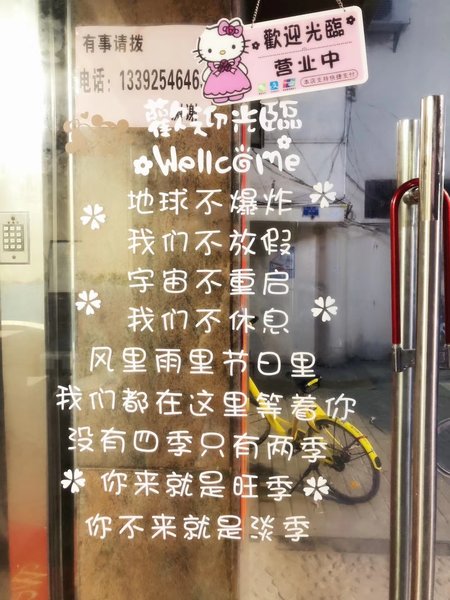 有事请拨
电话：13392546463
谢谢
歡迎光臨
营业中
本店支持快捷支付
歡迎光臨
Wellcome
地球不爆炸
我们不放假
宇宙不重启
我们不休息
风里雨里节日里
我们都在这里等着你
没有四季只有两季
你来就是旺季
你不来就是淡季